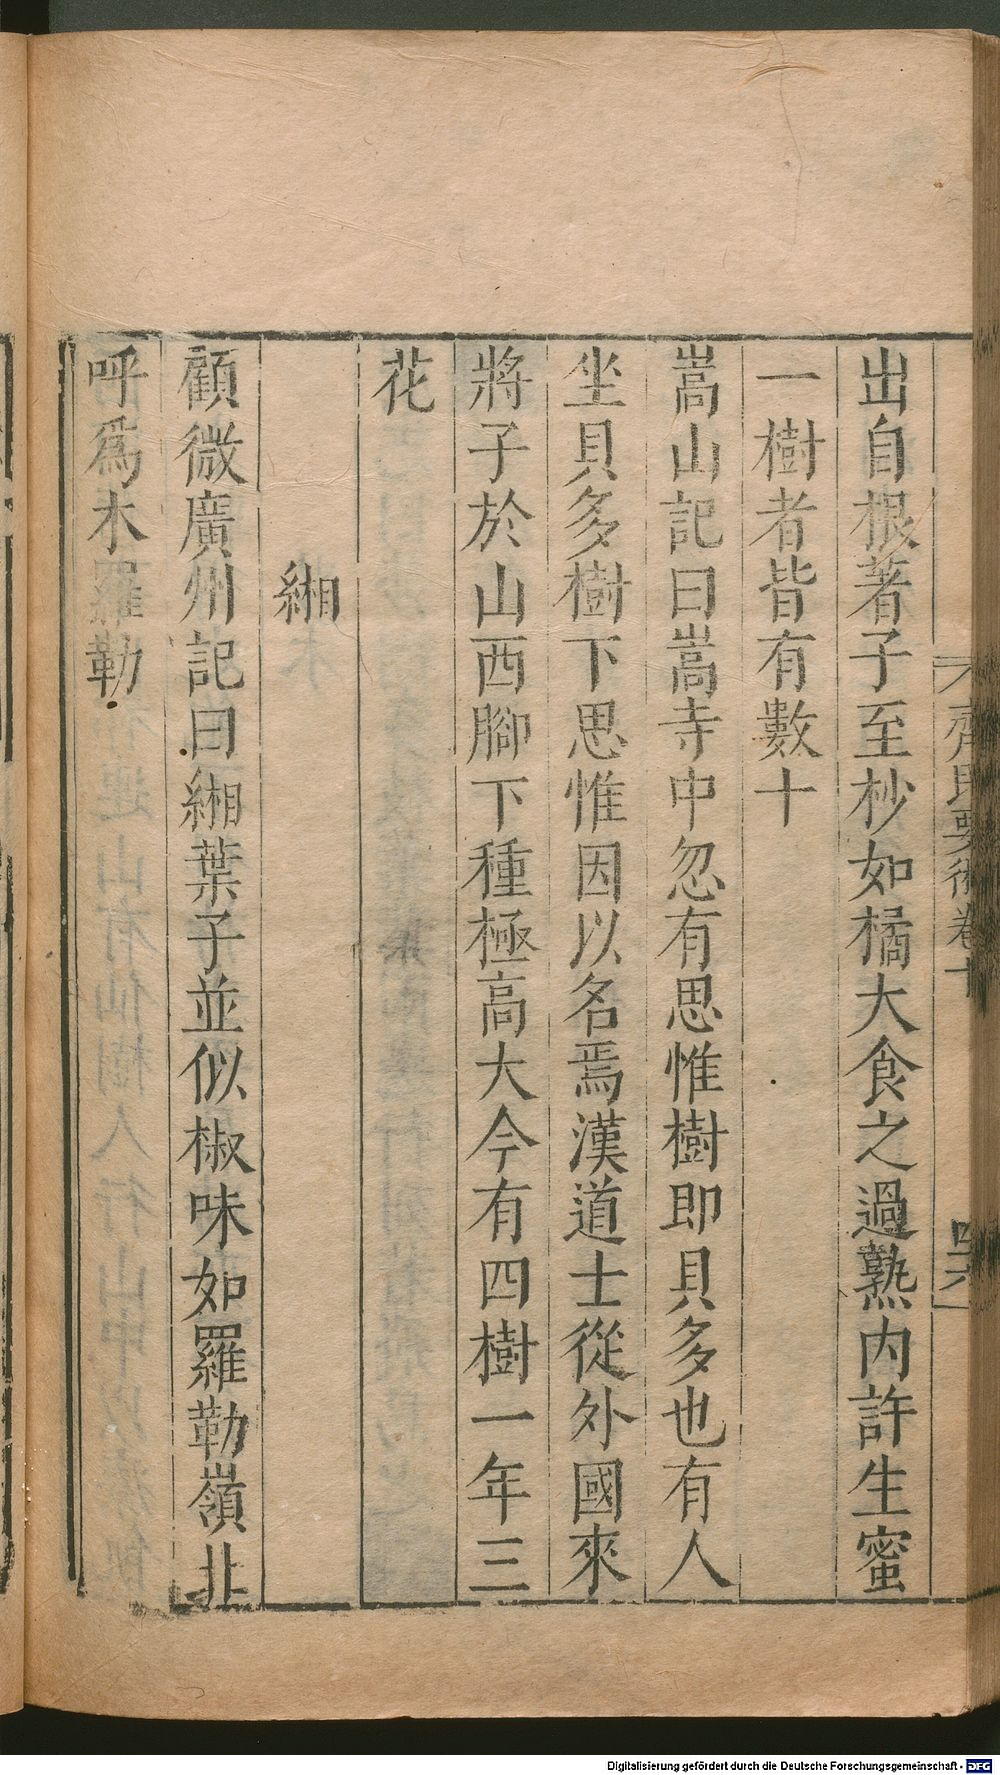 齊民要術卷十
四六
出自根著子至杪如橘大食之過熟内許生蜜
一樹者皆有數十
嵩山記曰嵩寺中忽有思惟樹即貝多也有人
坐貝多樹下思惟因以名焉漢道士從外國來
將子於山西腳下種極高大今有四樹一年三
花
緗
顧微廣州記曰緗葉子並似椒味如羅勒嶺北
呼爲木羅勒
Digitalisierung gefördert durch die Deutsche Forschungsgemeinschaft - DFG